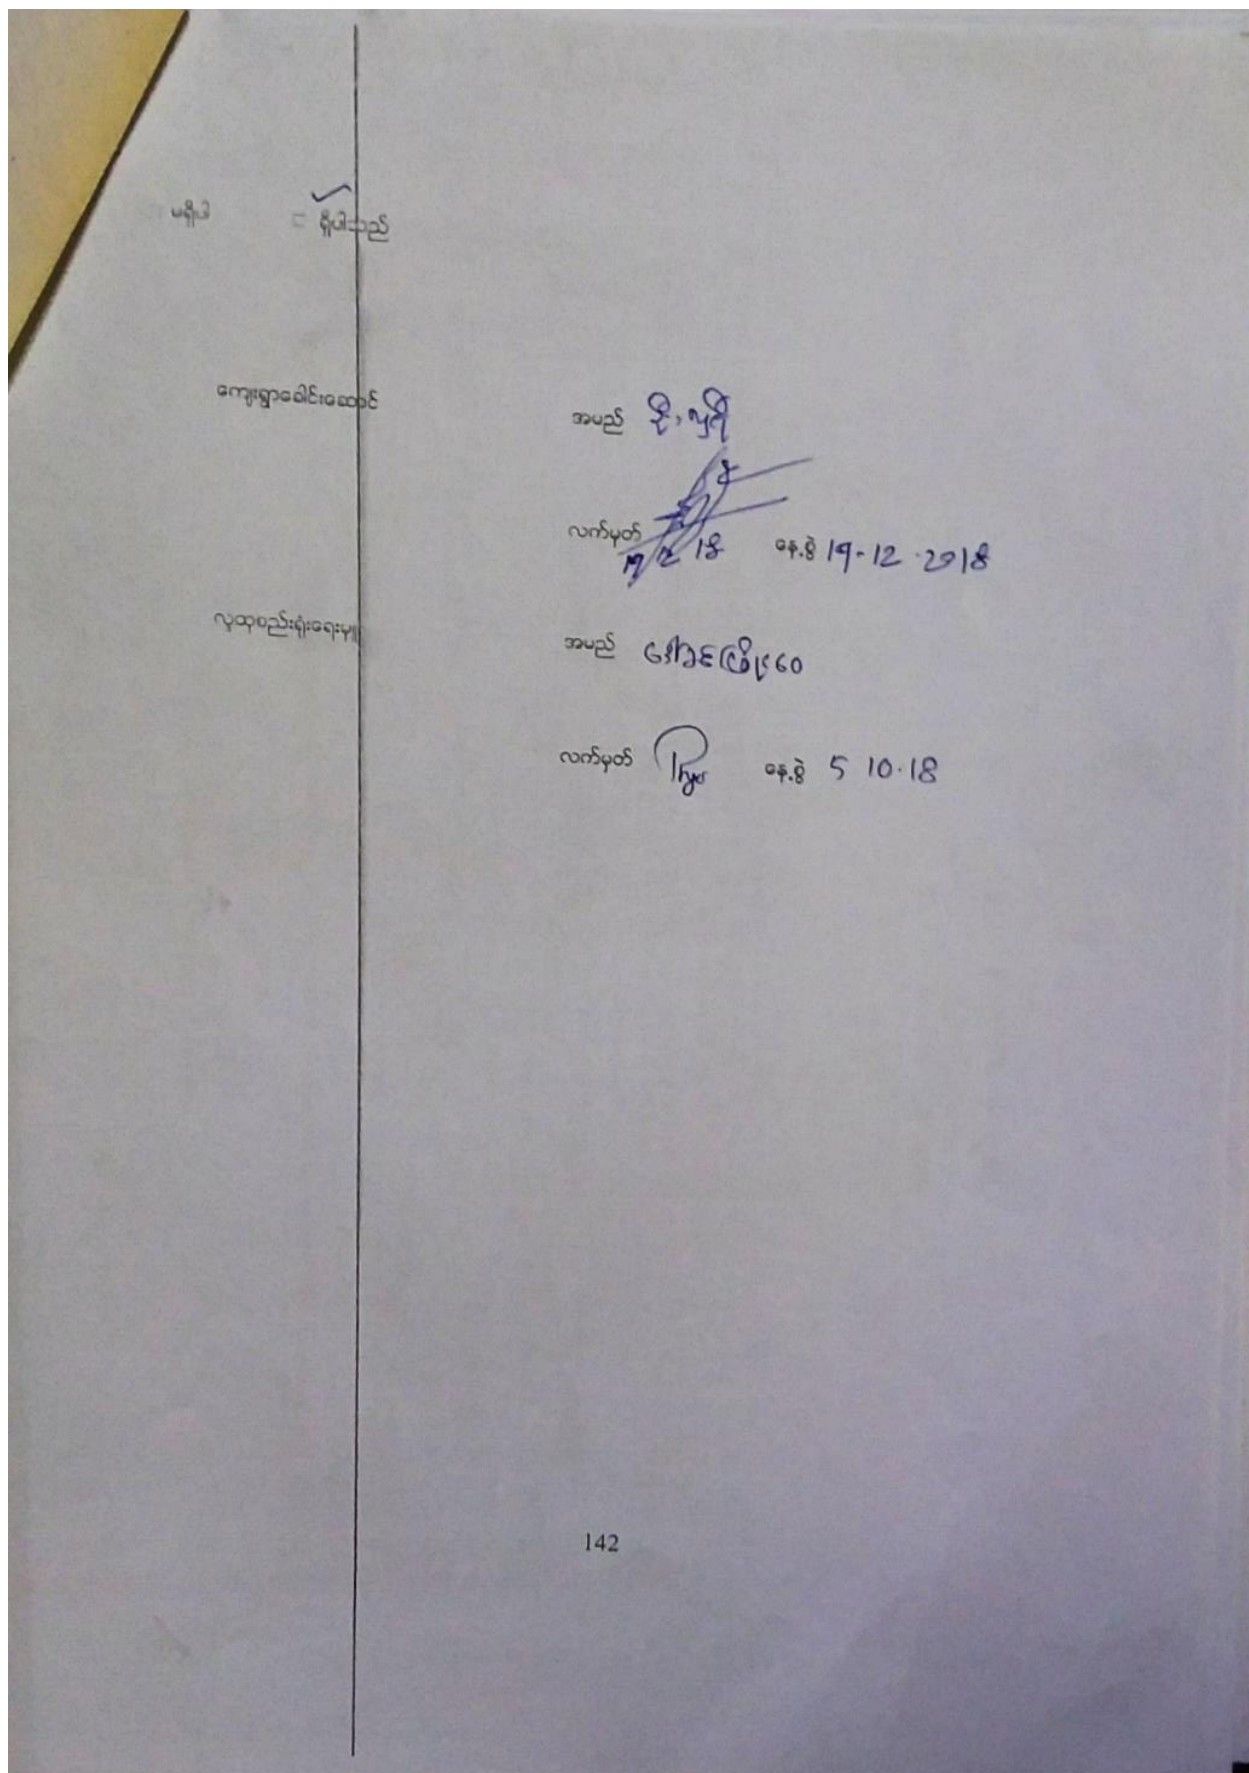 မရှိပါ ရှိပါသည်
ကျေးရွာခေါင်းဆောင်
အမည် ဦးလှရီ
လက်မှတ် 19/12/18 နေ့စွဲ 19-12-2018
လူထုစည်းရုံးရေးမှူး
အမည် အောင်ဖြိုးဝေ
လက်မှတ် Phyo နေ့စွဲ 5 10.18
142